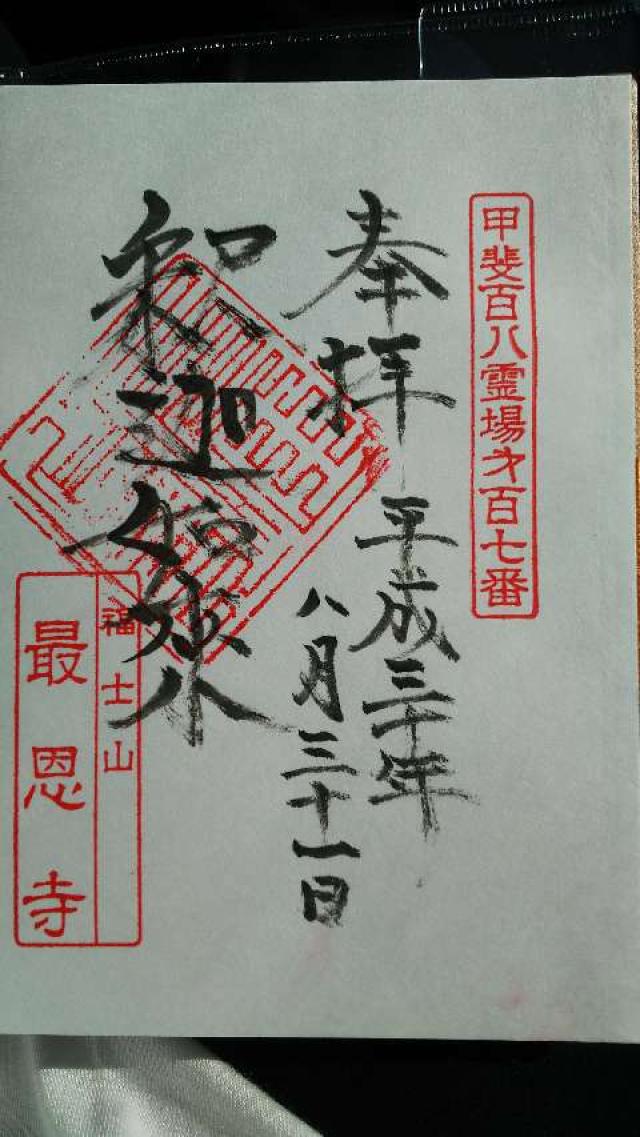 甲斐百八霊場才百七番
奉拝
平成三十年
八月三十一日
釈迦如来
福士山
最恩寺